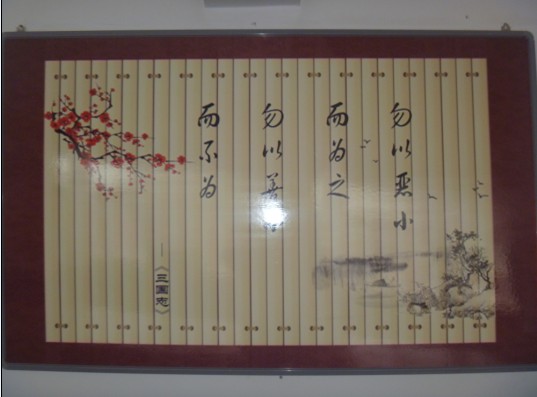 勿以恶小
而为之
勿以善小
而不为
——《三国志》